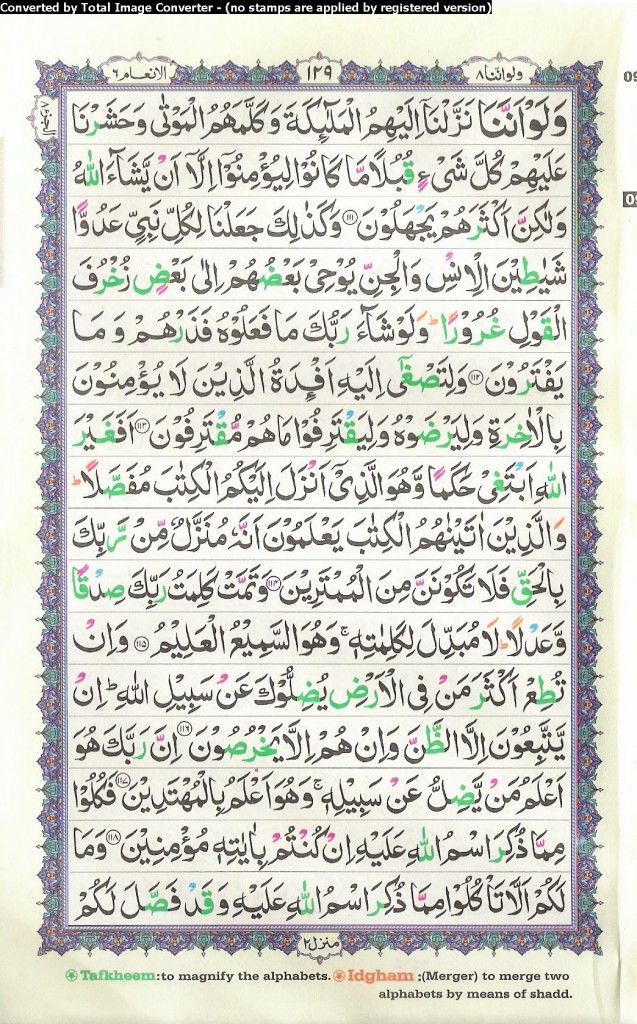 Converted by Total Image Converter - (no stamps are applied by registered version)
ولواننا ٨
١٢٩
الانعام ٦
الجزء ٨
وَلَوْ اَنَّنَا نَزَّلْنَاۤ اِلَيْهِمُ الْمَلٰٓئِكَةَ وَكَلَّمَهُمُ الْمَوْتٰى وَحَشَرْنَا
عَلَيْهِمْ كُلَّ شَىْءٍ قُبُلًا مَّا كَانُوْا لِيُؤْمِنُوْۤا اِلَّاۤ اَنْ يَّشَآءَ اللّٰهُ
وَلٰكِنَّ اَكْثَرَهُمْ يَجْهَلُوْنَ ﴿۱۱۱﴾ وَكَذٰلِكَ جَعَلْنَا لِكُلِّ نَبِىٍّ عَدُوًّا
شَيٰطِيْنَ الْاِنْسِ وَالْجِنِّ يُوْحِىْ بَعْضُهُمْ اِلٰى بَعْضٍ زُخْرُفَ
الْقَوْلِ غُرُوْرًا ؕ وَلَوْ شَآءَ رَبُّكَ مَا فَعَلُوْهُ فَذَرْهُمْ وَمَا
يَفْتَرُوْنَ ﴿۱۱۲﴾ وَلِتَصْغٰٓى اِلَيْهِ اَفْـِٕدَةُ الَّذِيْنَ لَا يُؤْمِنُوْنَ
بِالْاٰخِرَةِ وَلِيَرْضَوْهُ وَلِيَقْتَرِفُوْا مَا هُمْ مُّقْتَرِفُوْنَ ﴿۱۱۳﴾ اَفَغَيْرَ
اللّٰهِ اَبْتَغِىْ حَكَمًا وَّهُوَ الَّذِىْۤ اَنْزَلَ اِلَيْكُمُ الْكِتٰبَ مُفَصَّلًا ؕ
وَالَّذِيْنَ اٰتَيْنٰهُمُ الْكِتٰبَ يَعْلَمُوْنَ اَنَّهٗ مُنَزَّلٌ مِّنْ رَّبِّكَ
بِالْحَقِّ فَلَا تَكُوْنَنَّ مِنَ الْمُمْتَرِيْنَ ﴿۱۱۴﴾ وَتَمَّتْ كَلِمَتُ رَبِّكَ صِدْقًا
وَّعَدْلًا ؕ لَا مُبَدِّلَ لِكَلِمٰتِهٖ ۚ وَهُوَ السَّمِيْعُ الْعَلِيْمُ ﴿۱۱۵﴾ وَاِنْ
تُطِعْ اَكْثَرَ مَنْ فِى الْاَرْضِ يُضِلُّوْكَ عَنْ سَبِيْلِ اللّٰهِ ؕ اِنْ
يَّتَّبِعُوْنَ اِلَّا الظَّنَّ وَاِنْ هُمْ اِلَّا يَخْرُصُوْنَ ﴿۱۱۶﴾ اِنَّ رَبَّكَ هُوَ
اَعْلَمُ مَنْ يَّضِلُّ عَنْ سَبِيْلِهٖ ۚ وَهُوَ اَعْلَمُ بِالْمُهْتَدِيْنَ ﴿۱۱۷﴾ فَكُلُوْا
مِمَّا ذُكِرَ اسْمُ اللّٰهِ عَلَيْهِ اِنْ كُنْتُمْ بِاٰيٰتِهٖ مُؤْمِنِيْنَ ﴿۱۱۸﴾ وَمَا
لَكُمْ اَلَّا تَاْكُلُوْا مِمَّا ذُكِرَ اسْمُ اللّٰهِ عَلَيْهِ وَقَدْ فَصَّلَ لَكُمْ
منزل ٢
Tafkheem:to magnify the alphabets. Idgham :(Merger) to merge two
alphabets by means of shadd.